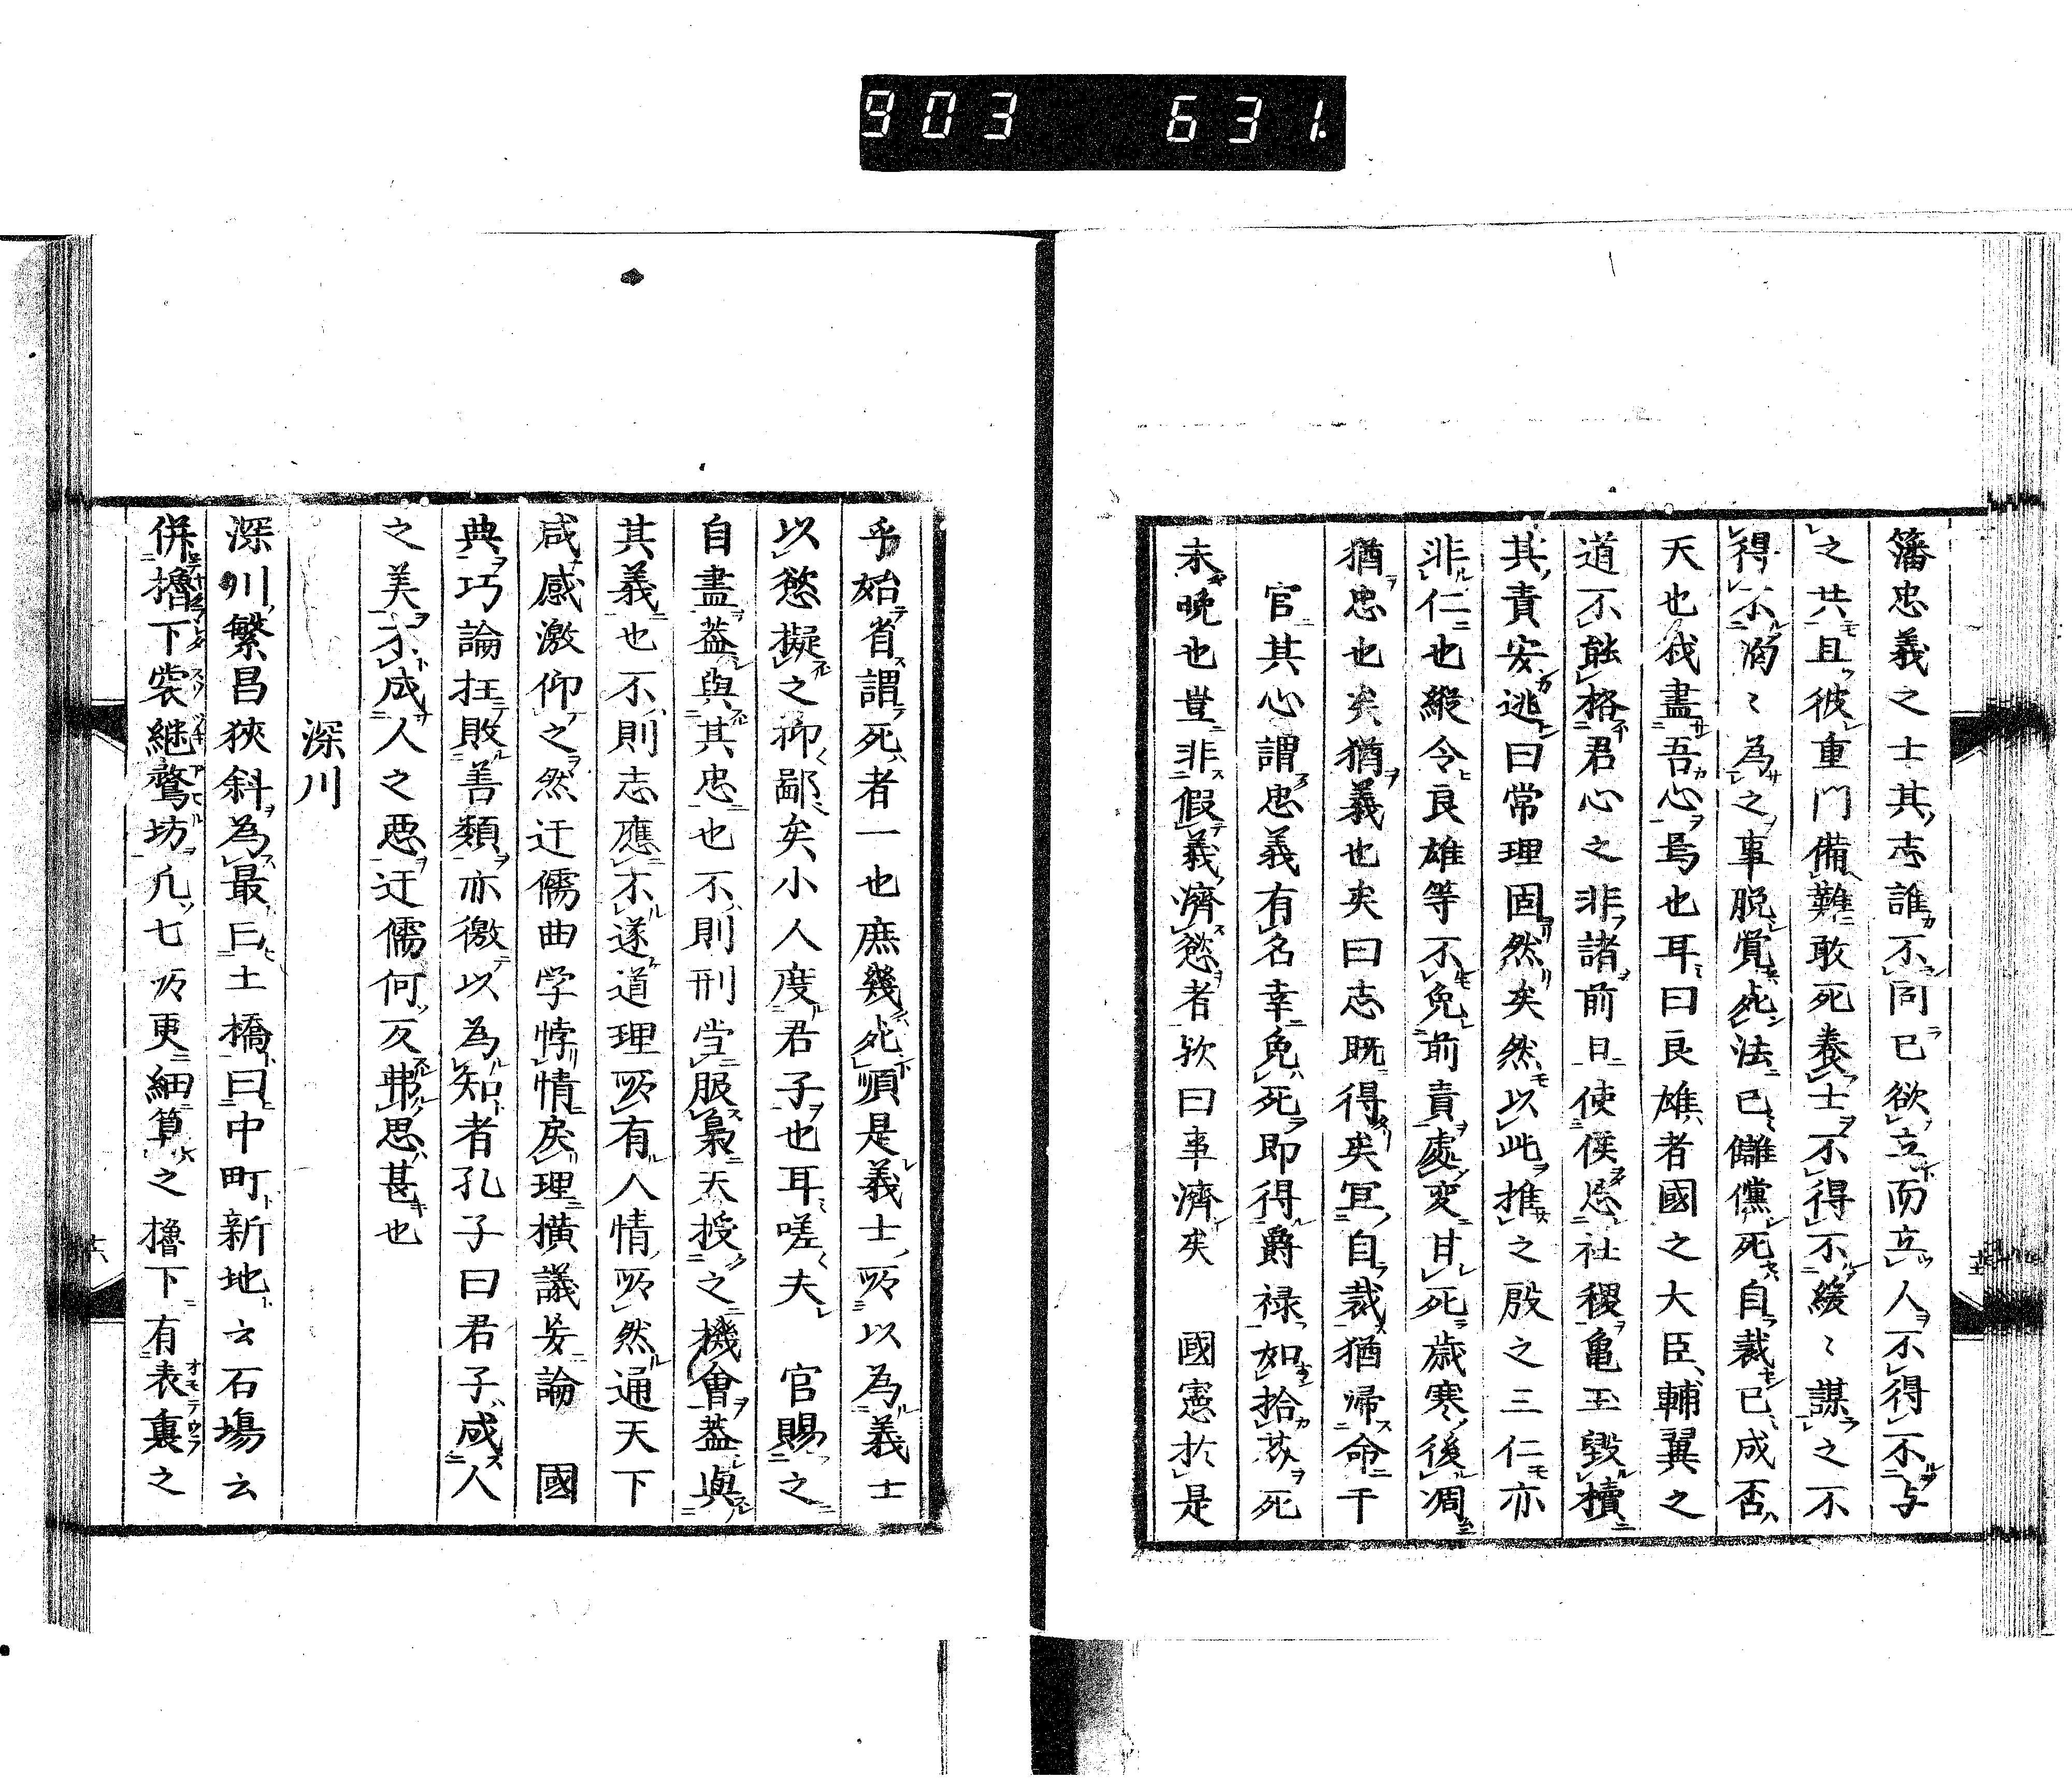 903 631.
籓忠義之士其志誰不同已欲立而立人不得不与
之共且彼重門備難敢死養士不得不緩〻謀之不
得不溺〻為之事脱覚死法已讎儻死自裁已成否
天也我盡吾心焉也耳曰良雄者國之大臣輔翼之
道不能格君心之非諸前日使侯忘社稷亀玉毀櫝
其責安逃曰常理固然矣然以此推之殷之三仁亦
非仁也縱令良雄等不免前責處変甘死歳寒後凋
猶忠也矣猶義也矣曰志既得矣冝自裁猶帰命于
官其心謂忠義有名幸免死即得爵禄如拾芥死
未晚也豈非假義濟慾者欤曰事濟矣 國憲於是
乎始省謂死者一也庶幾死順是義士所以為義士
以慾擬之抑鄙矣小人度君子也耳嗟夫 官賜之
自盡葢與其忠也不則刑当服梟天授之機會葢與
其義也不則志應不遂道理所有人情所然通天下
咸感激仰之然迂儒曲学悖情戾理横議妄論 國
典巧論抂敗善類亦徼以為知者孔子曰君子成人
之美不成人之惡迂儒何反弗思甚也
深川
深川繁昌狹斜為最曰土橋曰中町新地云石場云
併櫓下裳継鶩坊凢七所更細算之櫓下有表裏之